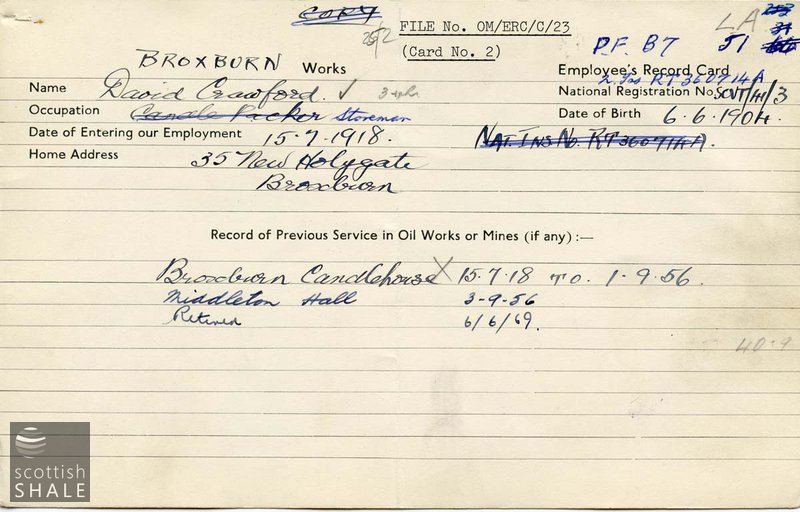 COPY
FILE No. OM/ERC/C/23
LA
(Card No. 2)
P.F. B7 51
BROXBURN Works
Employee's Record Card
N. Ins RT 360714A
Name David Crawford.
National Registration No. SCNT/141/3
Occupation Candle Packer Storeman
Date of Birth 6.6.1904.
Date of Entering our Employment 15.7.1918.
NAT. INS No. RT 360714A.
Home Address 35 New Holygate
Broxburn
Record of Previous Service in Oil Works or Mines (if any) :—
Broxburn Candlehouse X 15.7.18 TO. 1-9.56.
Middleton Hall 3-9-56
Retired 6/6/69.
40-9
scottish
SHALE